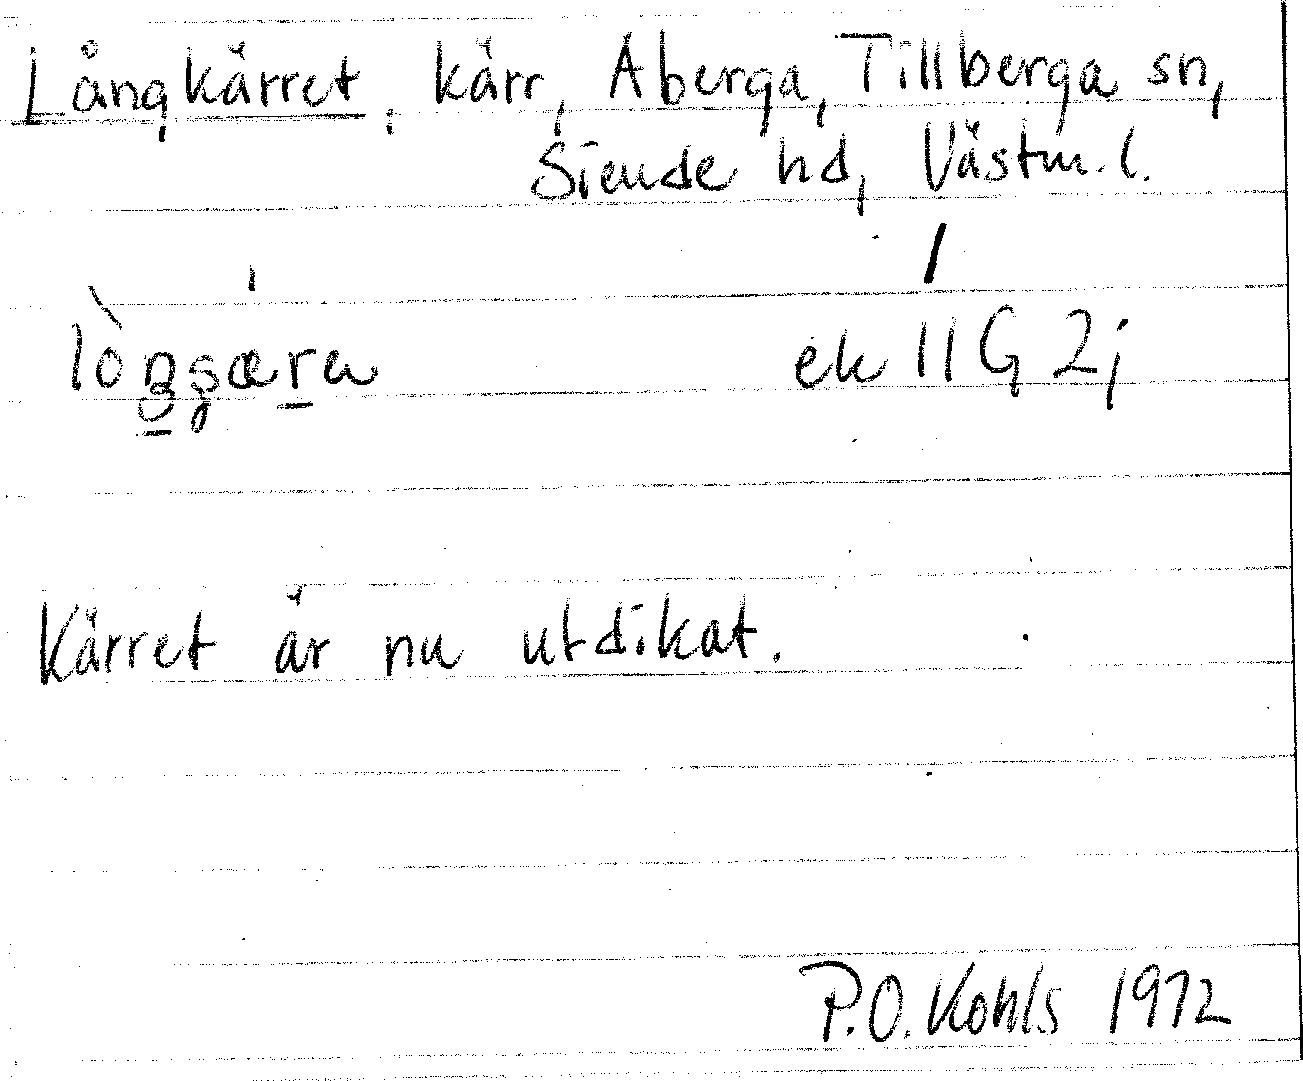 Långkärret, kärr, Åberga, Tillberga sn,
Siende hd, Västm. l.
ek 11G 2j
Kärret är nu utdikat.
P.O. Kohls 1972